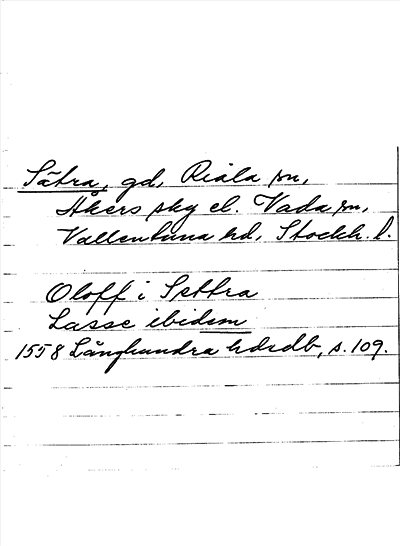 Sätra, gd, Riala sn,
Åkers skg el. Vada sn,
Vallentuna hd, Stockh. l.
Oloff i Settra
Lasse ibidem
1558 Långhundra hdrdb, s. 109.